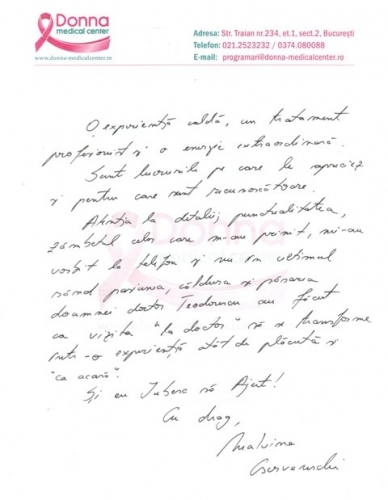 Donna
medical center
www.donna-medicalcenter.ro
Adresa: Str. Traian nr.234, et.1, sect.2, București
Telefon: 021.2523232 / 0374.080088
E-mail: programari@donna-medicalcenter.ro
O experiență caldă, un tratament
profesionist și o energie extraordinară.
Sunt lucrurile pe care le apreciez
și pentru care sunt recunoscătoare.
Atenția la detalii, punctualitatea,
zâmbetul celor care m-au primit, mi-au
vorbit la telefon și nu în ultimul
rând pasiunea, căldura și
doamnei doctor Teodorescu au făcut
ca vizita "la doctor" să se transforme
într-o experiență atât de plăcută și
"ca acasă".
Și eu Iubesc să Ajut!
Cu drag,
Malvina
Donna